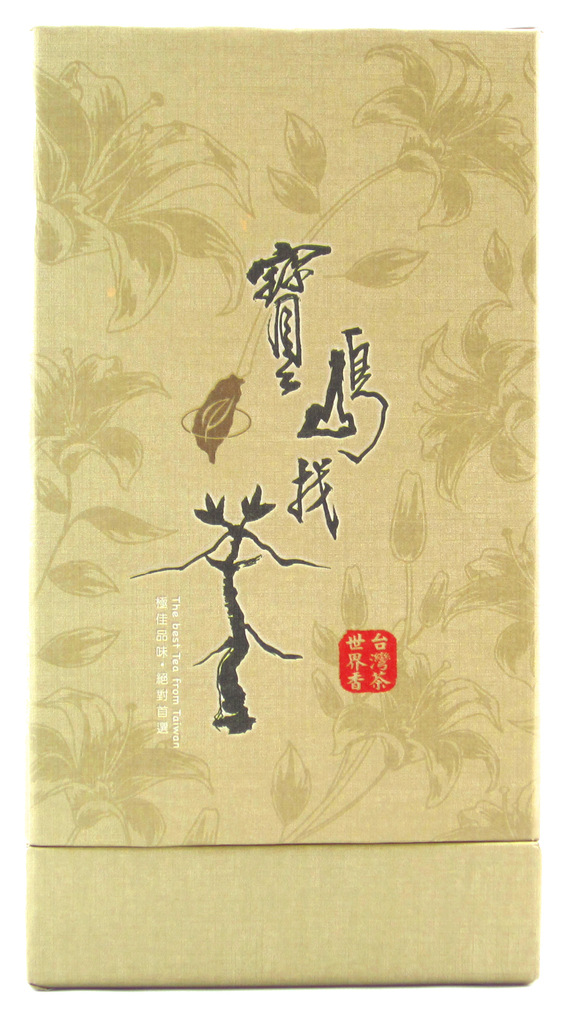 寶島找茶
台灣茶
世界香
The best Tea From Taiwan
極佳品味・絕對首選